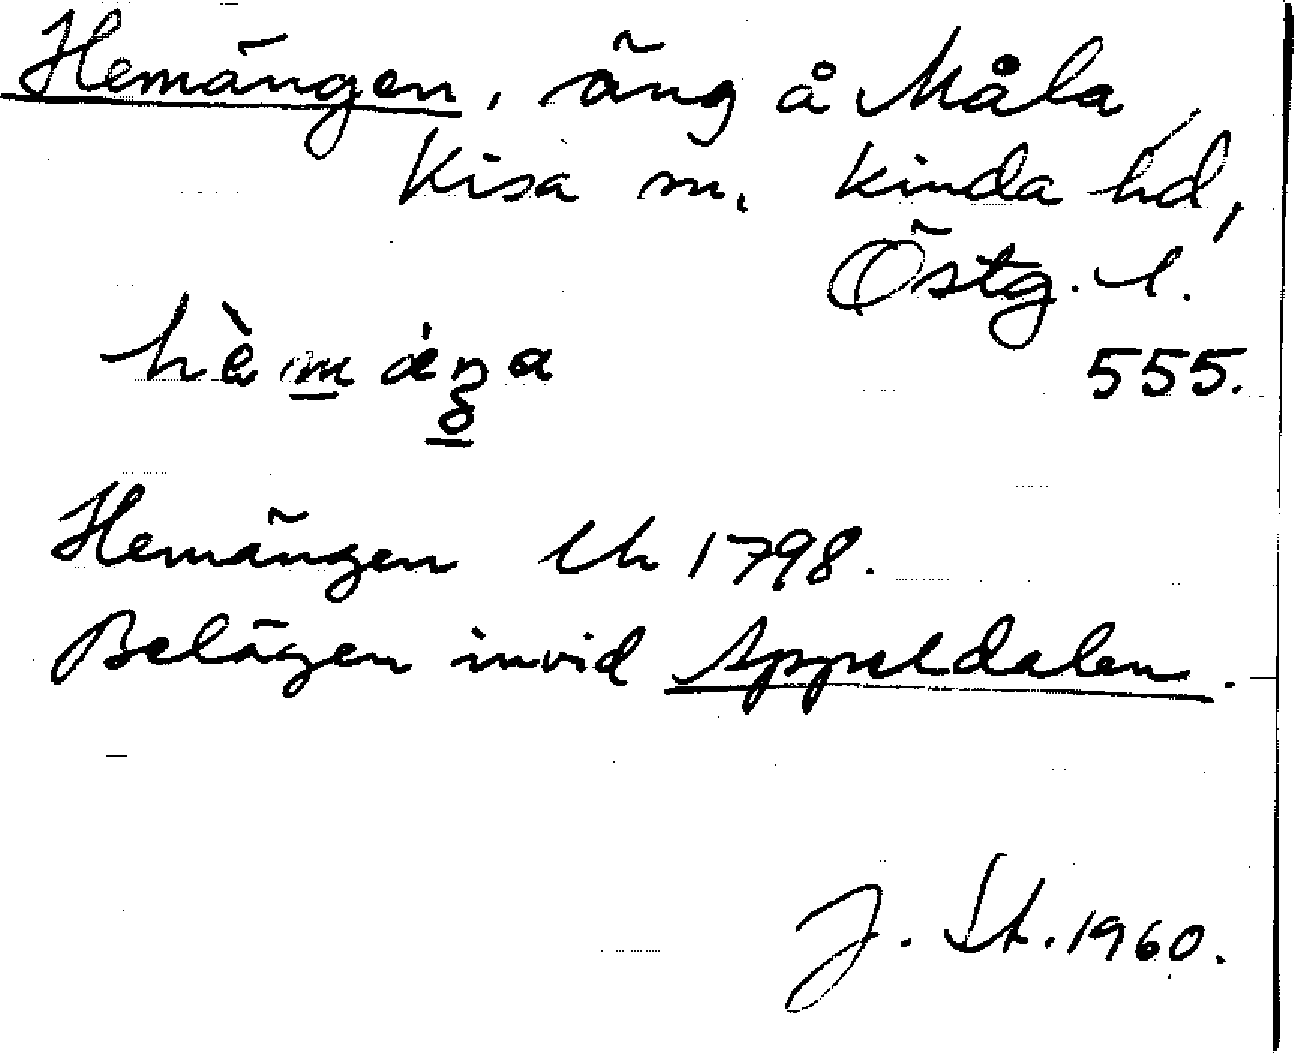 Hemängen, äng å Måla,
Kisa sn. Kinda hd,
Östg. l.
hèmäŋa 555.
Hemängen Uh 1798.
Belägen invid Appeldalen.
J. St. 1960.